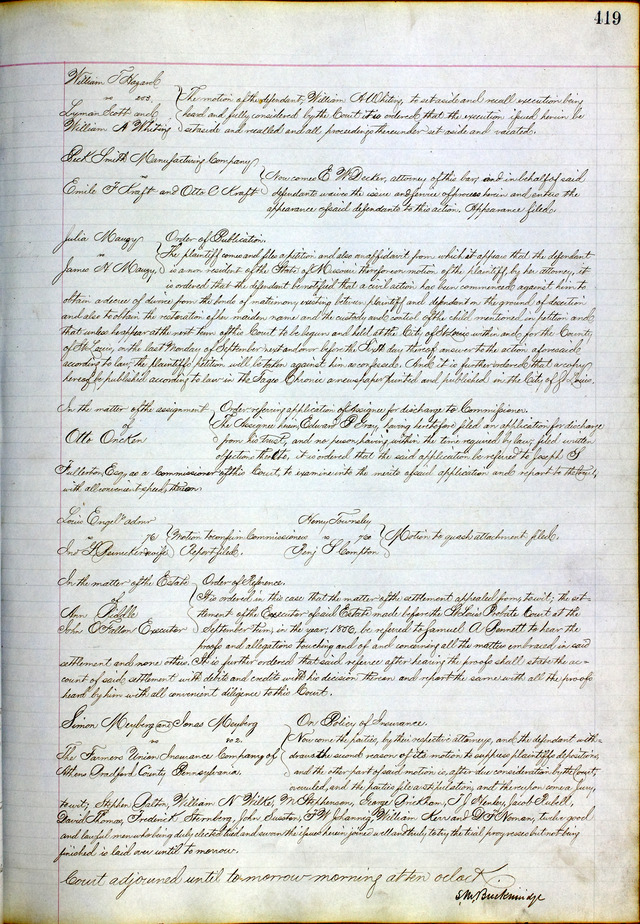 419
William T Hazard
vs 203
Lyman Scott and
William A Whiting
The motion of the defendant, William A Whiting, to set aside and recall execution being
heard and fully considered by the Court it is ordered that the execution issued herein be
set aside and recalled and all proceedings thereunder set aside and vacated.
Beck Smith Manufacturing Company
vs
Emile F Kraft and Otto C Kraft
Now comes E W Decker, attorney of this bar, and in behalf of said
defendants waives the issue and service of process herein and enters the
appearance of said defendants to this action. Appearance filed.
Julia Maugy
vs
James H Maugy
Order of Publication.
The plaintiff comes and files a petition and also an affidavit from which it appears that the defendant
is a non resident of the State of Missouri therefore on motion of the plaintiff, by her attorney, it
is ordered that the defendant be notified that a civil action has been commenced against him to
obtain a decree of divorce from the bonds of matrimony existing between plaintiff and defendant on the ground of desertion
and also to obtain the restoration of her maiden name and the custody and control of the child mentioned in petition and
that unless he appear at the next term of this Court to be begun and held at the City of St Louis within and for the County
of St Louis, on the last Monday of September next and on or before the Sixth day thereof answer to the action aforesaid
according to law, the plaintiff's petition will be taken against him as confessed. And it is further ordered that a copy
hereof be published according to law in the a newspaper printed and published in the City of St Louis.
In the matter of the assignment
of
Otto Oncken
Order referring application of Assignee for discharge to Commissioner.
The Assignee herein Edward P Gray, having heretofore filed an application for discharge
from his trust, and no person having within the time required by law, filed written
opposition thereto, it is ordered that the said application be referred to Joseph S
Fullerton, Esq, as a Commissioner of this Court, to examine into the merits of said application and report to the Court,
with all convenient speed, thereon.
Louis Engel admr
vs 76
Jno wife
Motion to confirm Commissioners
Report filed.
Henry Townsley
vs 730
Benj F Compton
Motion to quash attachment filed.
In the matter of the Estate
of
Ann Biddle
John O'Fallon Executor
Order of Reference.
It is ordered in this case that the matter of the settlement appealed from, to wit; the set-
tlement of the Executor of said Estate made before the St Louis Probate Court at the
September term, in the year, 1866, be referred to Samuel A Bennett to hear the
proofs and allegations touching and of and concerning all the matters embraced in said
settlement and none other. It is further ordered that said referee after hearing the proofs shall state the ac-
count of said settlement with debits and credits with his decision thereon and report the same with all the proofs
heard by him with all convenient diligence to this Court.
Simon Meyberg and Jonas Meyberg
vs 202.
The Farmers Union Insurance Company of
Athens Bradford County Pennsylvania.
On Policy of Insurance.
Now come the parties, by their respective attorneys, and the defendant with-
draws the second reason of its motion to suppress plaintiffs depositions,
and the other part of said motion is, after due consideration by the Court,
overruled, and the parties file a stipulation, and thereupon come a jury,
to wit; Stephen Patton, William N Wilks, M Stephenson, George Brickham, Jacob
David Thomas, Frederick Sternberg, John F W Channy, William Kerr and D F Noman, twelve good
and lawful men who being duly elected tried and sworn the issues herein joined well and truly to try, the trial progresses but not being
finished is laid over until to morrow.
Court adjourned until to-morrow morning at ten o'clock.
S. M. Breckinridge